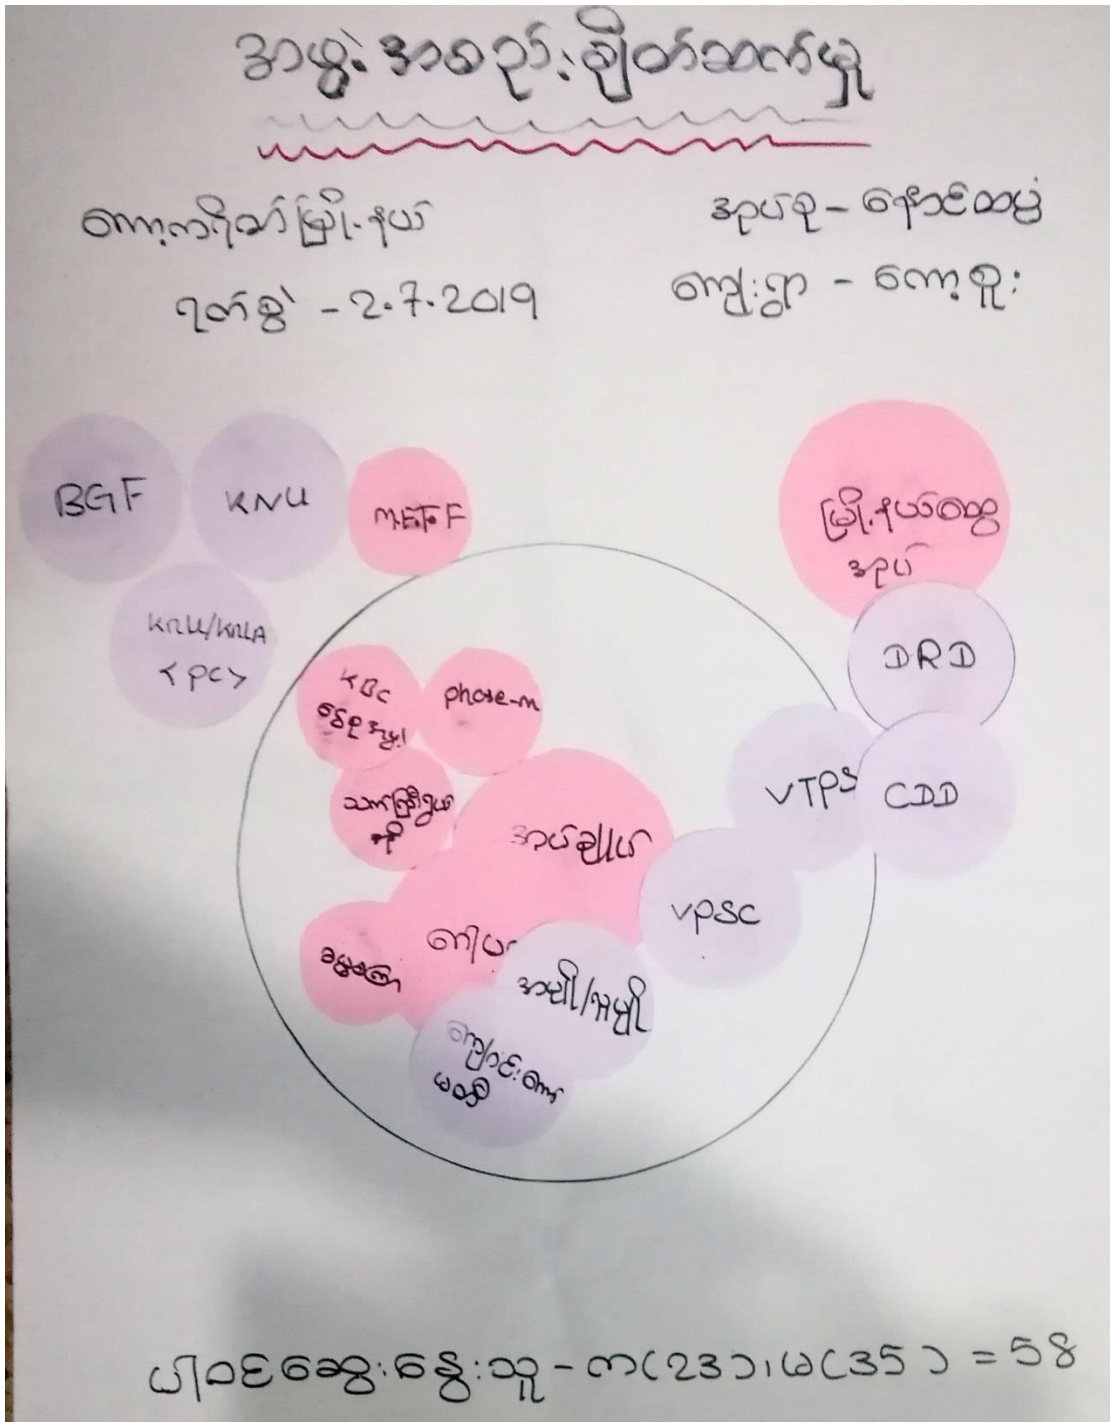 အဖွဲ့အစည်းချိတ်ဆက်မှု
ကော့ကရိတ်မြို့နယ်
အုပ်စု - နောင်တပွဲ
ရက်စွဲ - 2.7.2019
ကျေးရွာ - ကော့စူး
BGF
KNU
မြို့နယ်ထွေ
အုပ်
KNU/KNLA
<PC>
DRD
KBC
phase-m
VTPS
CDD
အုပ်ချုပ်
VPSC
ကျောင်းကော်
မတီ
ပါဝင်ဆွေးနွေးသူ - က(23)၊မ(35) = 58